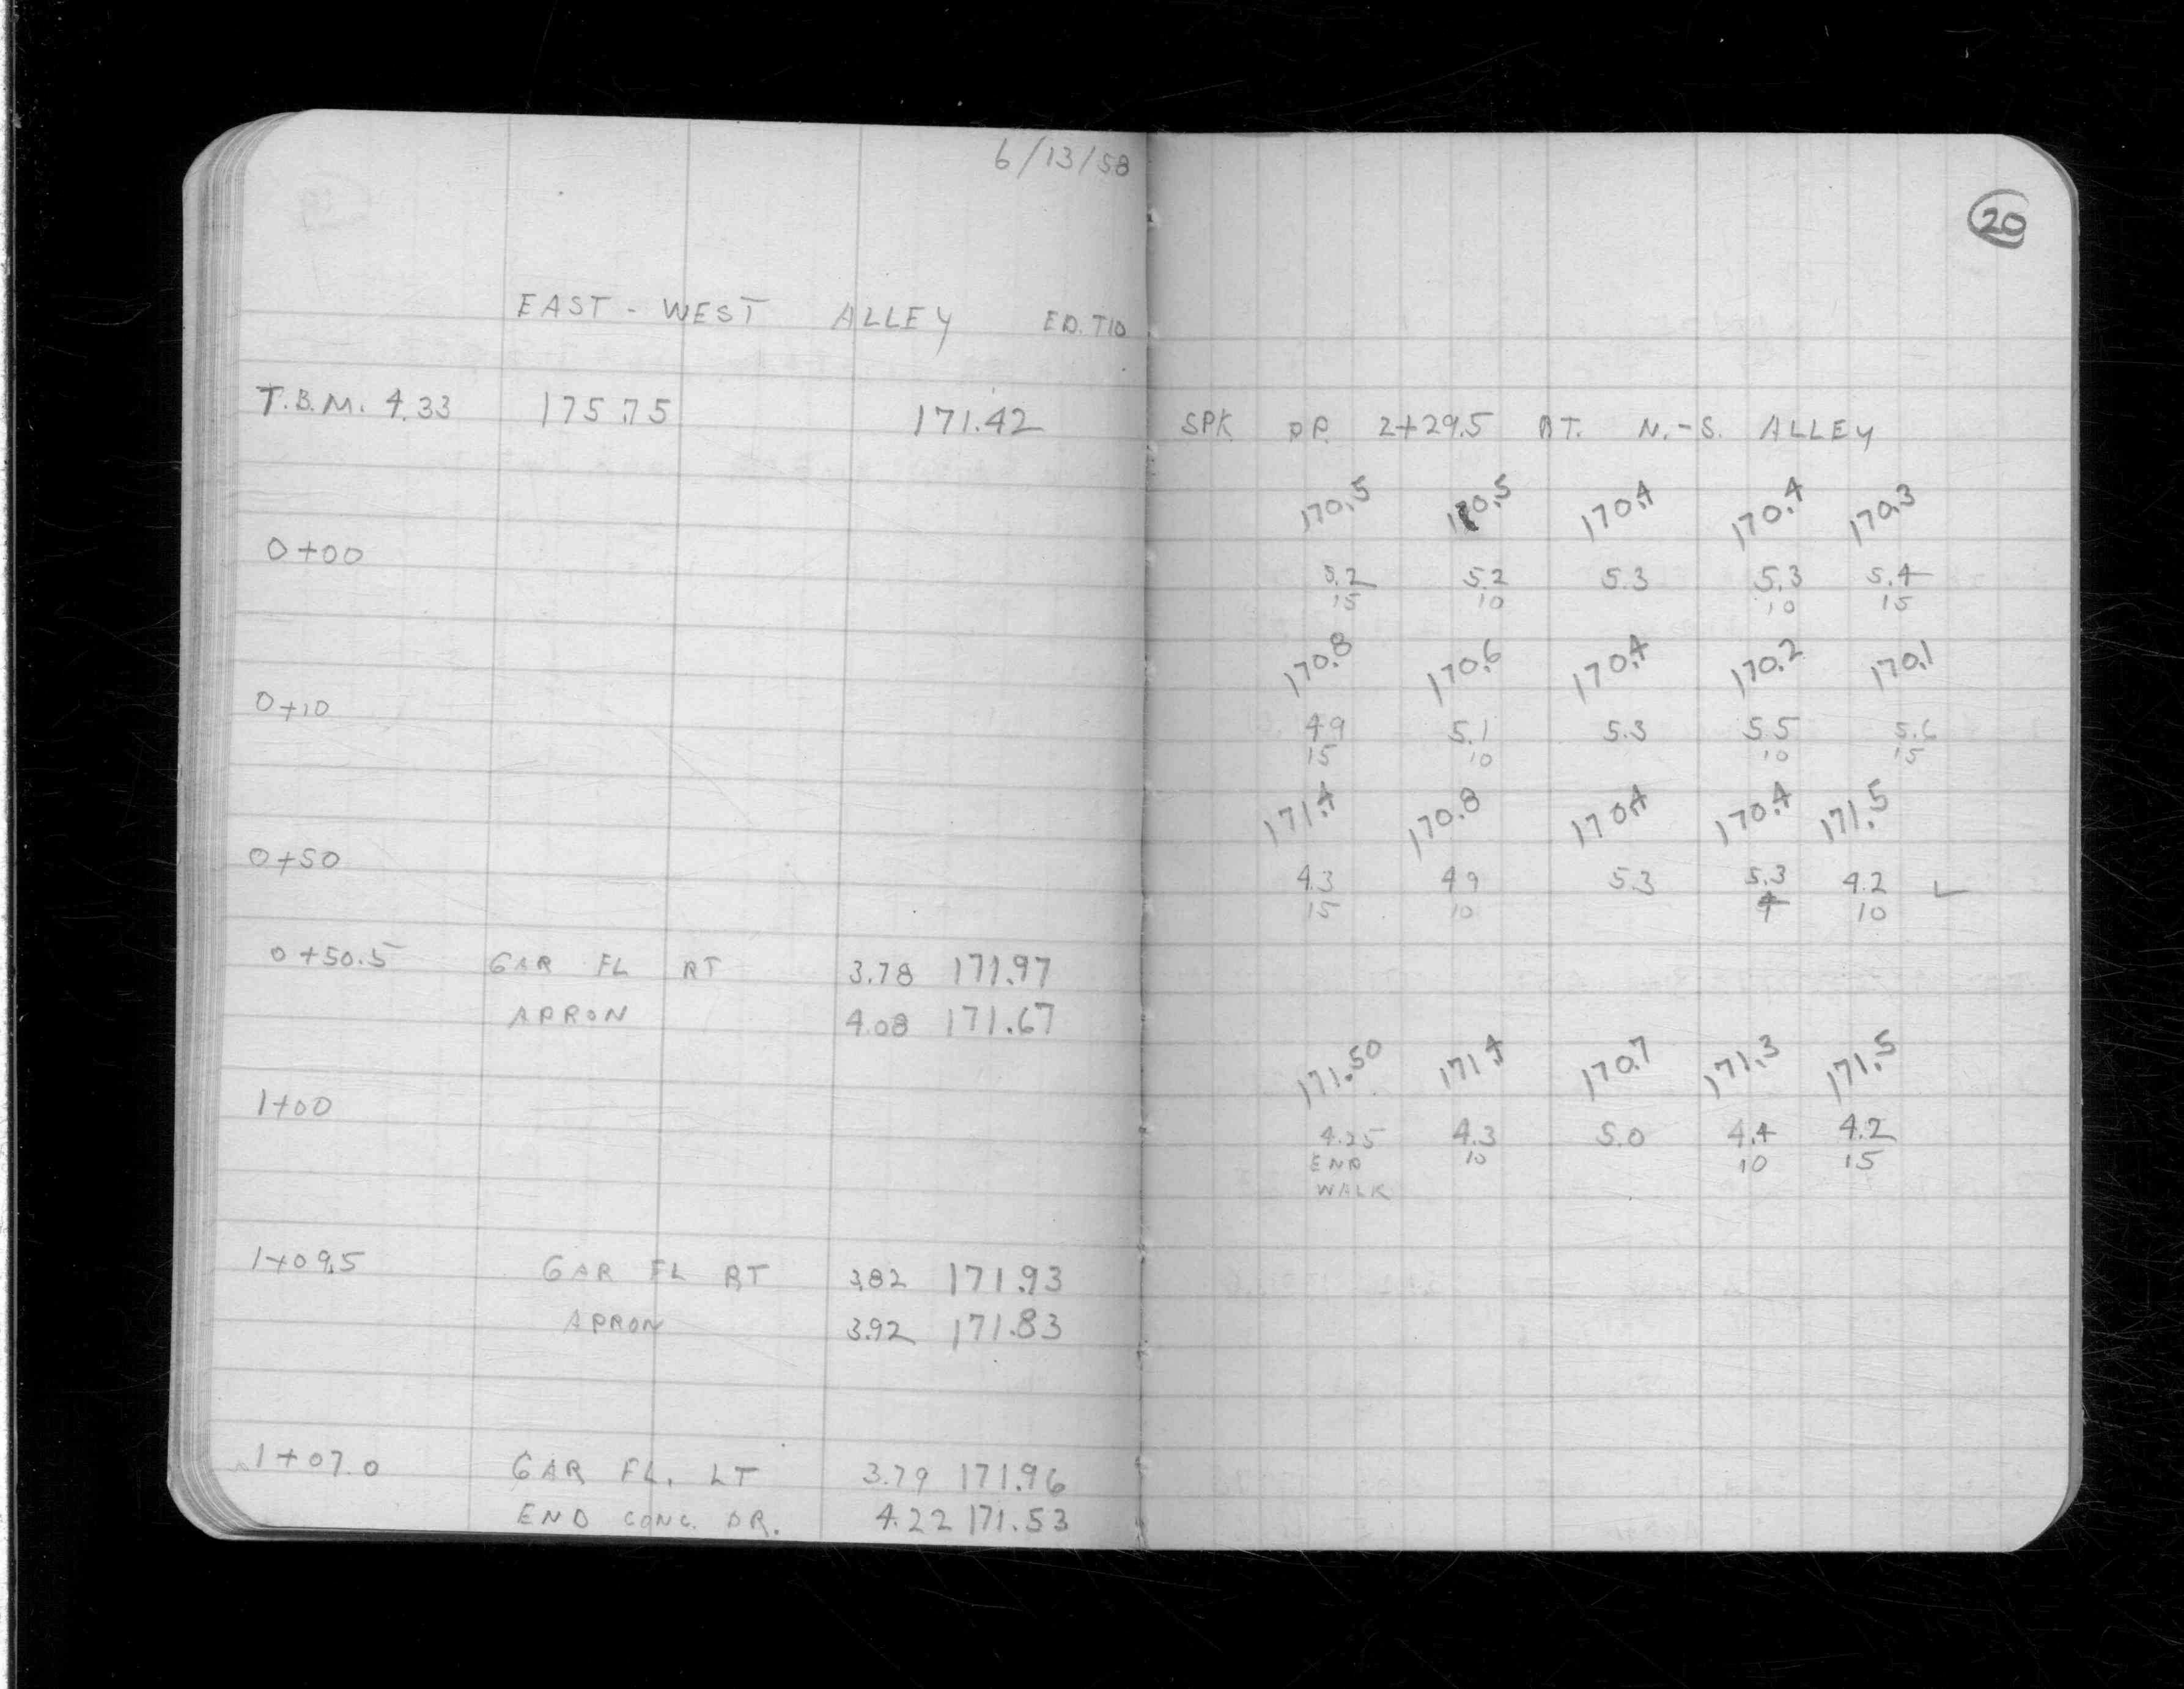 6/13/58
20
EAST - WEST ALLEY ED. T10
T.B.M. 4.33 175.75 171.42 SPK P.P. 2+29.5 RT. N.-S. ALLEY
170.5 170.5 170.4 170.4 170.3
0+00 5.2 5.2 5.3 5.3 5.4
15 10 10 15
170.8 170.6 170.4 170.2 170.1
0+10 4.9 5.1 5.3 5.5 5.6
15 10 10 15
171.4 170.8 170.4 170.4 171.5
0+50 4.3 4.9 5.3 5.3 4.2
15 10 10
0+50.5 GAR FL RT 3.78 171.97
APRON 4.08 171.67
171.50 171.4 170.7 171.3 171.5
1+00 4.25 4.3 5.0 4.4 4.2
END 10 10 15
WALK
1+09.5 GAR FL RT 3.82 171.93
APRON 3.92 171.83
1+07.0 GAR FL. LT 3.79 171.96
END CONC. DR. 4.22 171.53